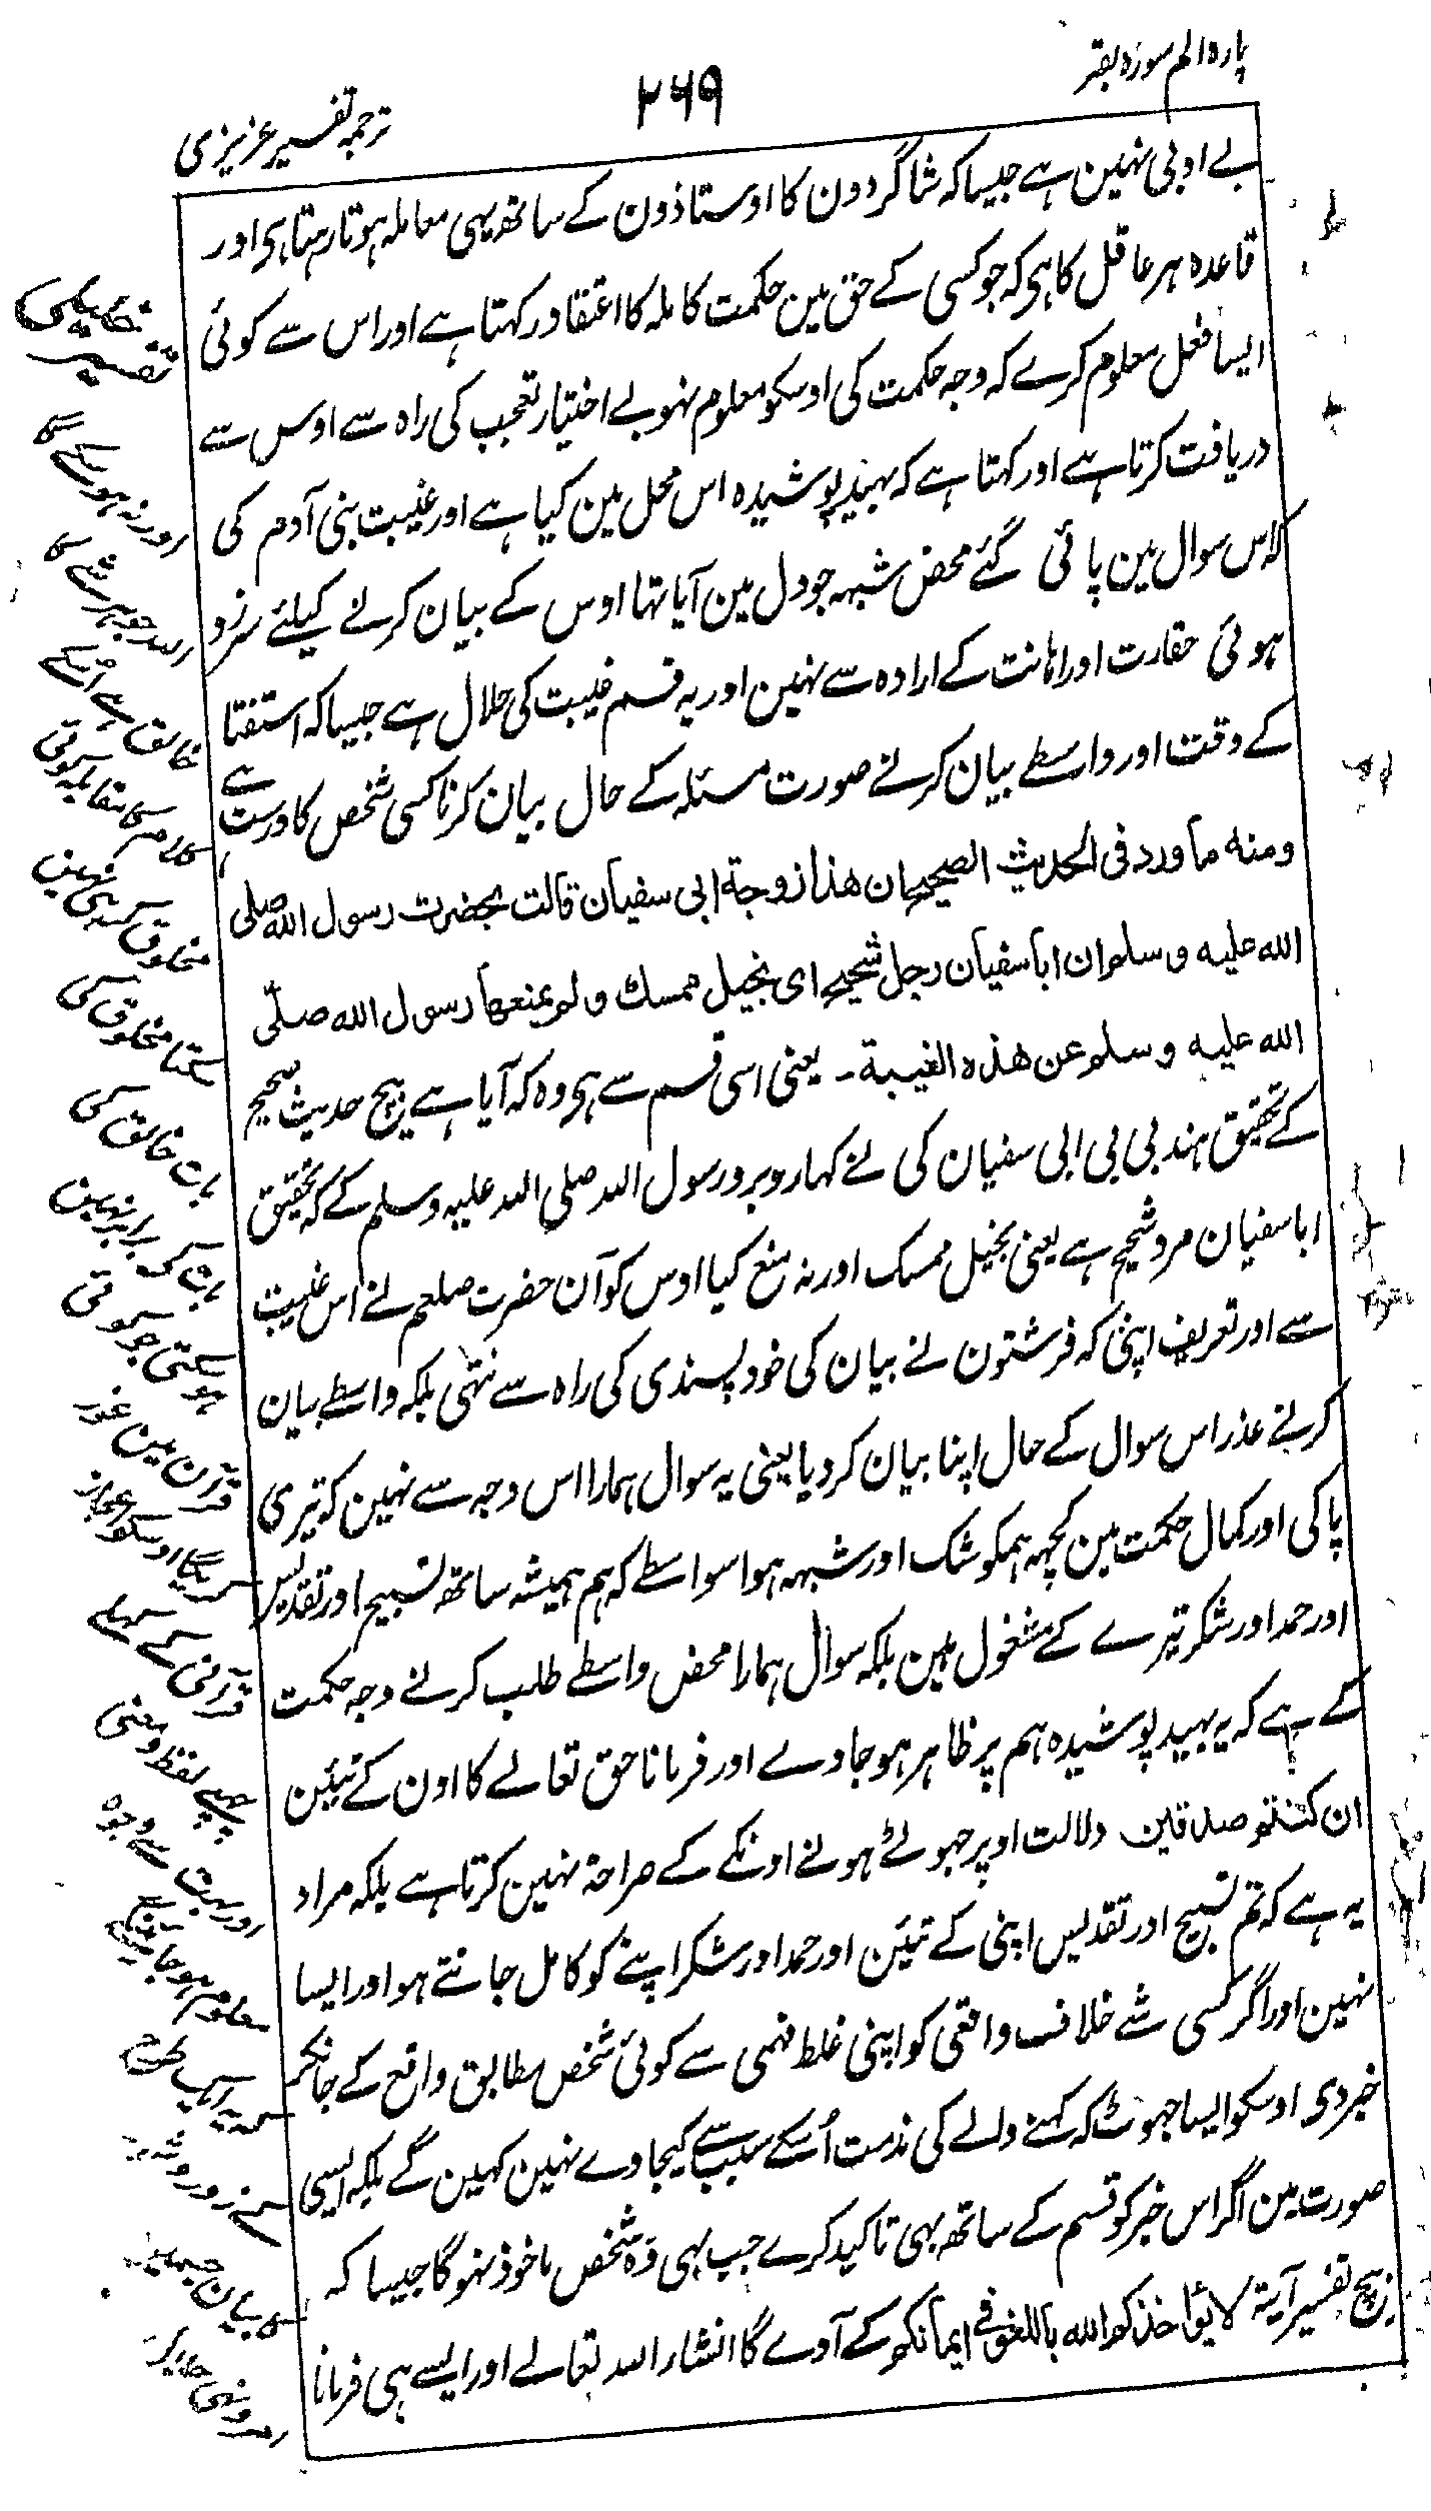 پارہ الم سورہ بقر
۲۶۹
ترجمہ تفسیر عزیزی
بے ادبی نہین ہے جیسا کہ شاگردون کا اوستاذون کے ساتھ یہی معاملہ ہوتا رہتا ہی اور
قاعدہ ہر عاقل کا ہی کہ جو کسی کے حق مین حکمت کاملہ کا اعتقاد رکہتا ہے اور اس سے کوئی
ایسا فعل معلوم کرے کہ وجہ حکمت کی اوسکو معلوم نہو بے اختیار تعجب کی راہ سے اوس سے
دریافت کرتا ہے اور کہتا ہے کہ بہید پوشیدہ اس محل مین کیا ہے اور غیبت بنی آدم کی
کہ اس سوال مین پائی گئے محض شبہہ جو دل مین آیا تہا اوس کے بیان کرنے کیلئے سرزد
ہوئی حقارت اور اہانت کے ارادہ سے نہین اور یہ قسم غیبت کی حلال ہے جیسا کہ استفتا
کے وقت اور واسطے بیان کرنے صورت مسئلہ کے حال بیان کرنا کسی شخص کا درست ہے
ومنه ما ورد فى الحديث الصحيح ان هندا زوجة ابى سفيان قالت بحضرت رسول الله صلى
الله عليه وسلم ان ابا سفيان رجل شحيح اى بخيل ممسك ولم يمنعها رسول الله صلّى
الله عليه وسلم عن هذه الغيبة ۔ یعنی اسی قسم سے ہی وہ کہ آیا ہے بیچ حدیث صحیح
کے تحقیق ہند بی بی ابی سفیان کی نے کہا روبرو رسول اللہ صلی اللہ علیہ وسلم کے کہ تحقیق
ابا سفیان مرد شحیح ہے یعنی بخیل ممسک اور نہ منع کیا اوس کو آن حضرت صلعم نے اس غیبت
سے اور تعریف اپنی کہ فرشتون نے بیان کی خود پسندی کی راہ سے نتہی بلکہ واسطے بیان
کرنے عذر اس سوال کے حال اپنا بیان کر دیا یعنی یہ سوال ہمارا اس وجہ سے نہین کہ تیری
پاکی اور کمال حکمت مین کچہہ ہمکو شک اور شبہہ ہوا سواسطے کہ ہم ہمیشہ ساتھ تسبیح اور تقدیس
اور حمد اور شکر تیرے کے مشغول ہین بلکہ سوال ہمارا محض واسطے طلب کرنے وجہ حکمت
کے ہے کہ یہ بہید پوشیدہ ہم پر ظاہر ہو جاوے اور فرمانا حق تعالے کا اون کے تئین
ان كنتم صدقين دلالت اوپر جہوٹے ہونے اونکے کے صراحۃ نہین کرتا ہے بلکہ مراد
یہ ہے کہ تم تسبیح اور تقدیس اپنی کے تئین اور حمد اور شکر اپنے کو کامل جانتے ہو اور ایسا
نہین اور اگر کسی شے خلاف واقعی کو اپنی غلط فہمی سے کوئی شخص مطابق واقع کے جانکر
خبر دی اوسکو ایسا جہوٹ کہ کہنے والے کی مذمت اُسکے سبب سے کیجاوے نہین کہین گے بلکہ ایسی
صورت مین اگر اس خبر کو قسم کے ساتھ بہی تاکید کرے جب بہی وہ شخص ماخوذ نہو گا جیسا کہ
بیچ تفسیر آیۃ لا يؤاخذكم الله باللغو فى ايمانكم کے آوے گا انشاء اللہ تعالے اور ایسے ہی فرمانا
تفسیر
خالق
مخلوق کی نہین
سکتا مخلوق کی
بات خالق کی
بات کی برابر نہین
ہو سکتی جو کوئی
قرآن مین غور
کریگا اوسکو اعجاز
قرآنی کے
لفظ و معنی
معلوم ہو جائینگے